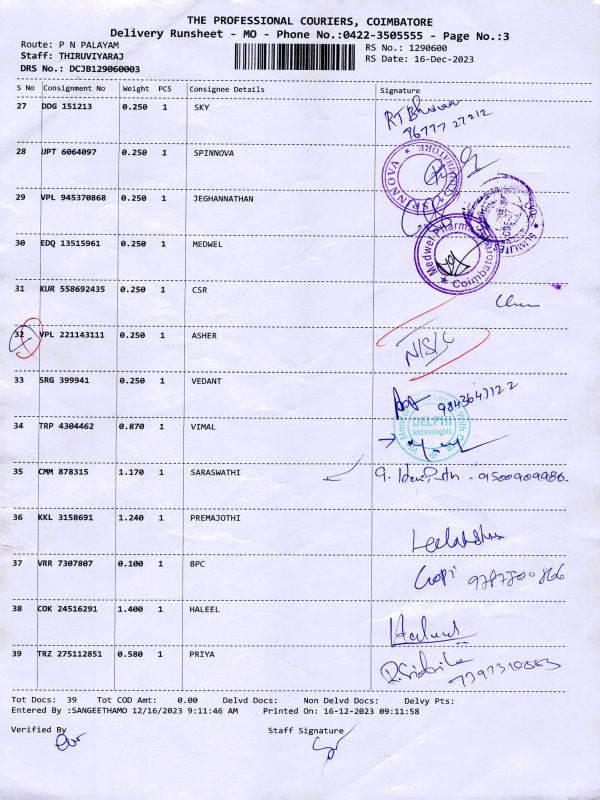 THE PROFESSIONAL COURIERS, COIMBATORE
Delivery Runsheet - MO - Phone No.:0422-3505555 - Page No.:3
Route: P N PALAYAM
RS No.: 1290600
Staff: THIRUVIYARAJ
RS Date: 16-Dec-2023
DRS No.: DCJB129060003
S No Consignment No Weight PCS Consignee Details Signature
27 DDG 151213 0.250 1 SKY
28 UPT 6064097 0.250 1 SPINNOVA
29 VPL 945370868 0.250 1 JEGHANNATHAN
30 EDQ 13515961 0.250 1 MEDWEL
Medwel Pharma
Coimbatore
31 KUR 558692435 0.250 1 CSR
32 VPL 221143111 0.250 1 ASHER
N/S/C
33 SRG 399941 0.250 1 VEDANT
9843647122
34 TRP 4304462 0.870 1 VIMAL
DELPHI
technologies
35 CMM 878315 1.170 1 SARASWATHI
9500909986
36 KKL 3158691 1.240 1 PREMAJOTHI
37 VRR 7307807 0.100 1 BPC
Gopi
38 COK 24516291 1.400 1 HALEEL
39 TRZ 275112851 0.580 1 PRIYA
Tot Docs: 39 Tot COD Amt: 0.00 Delvd Docs: Non Delvd Docs: Delvy Pts:
Entered By :SANGEETHAMO 12/16/2023 9:11:46 AM Printed On: 16-12-2023 09:11:58
Verified By Staff Signature